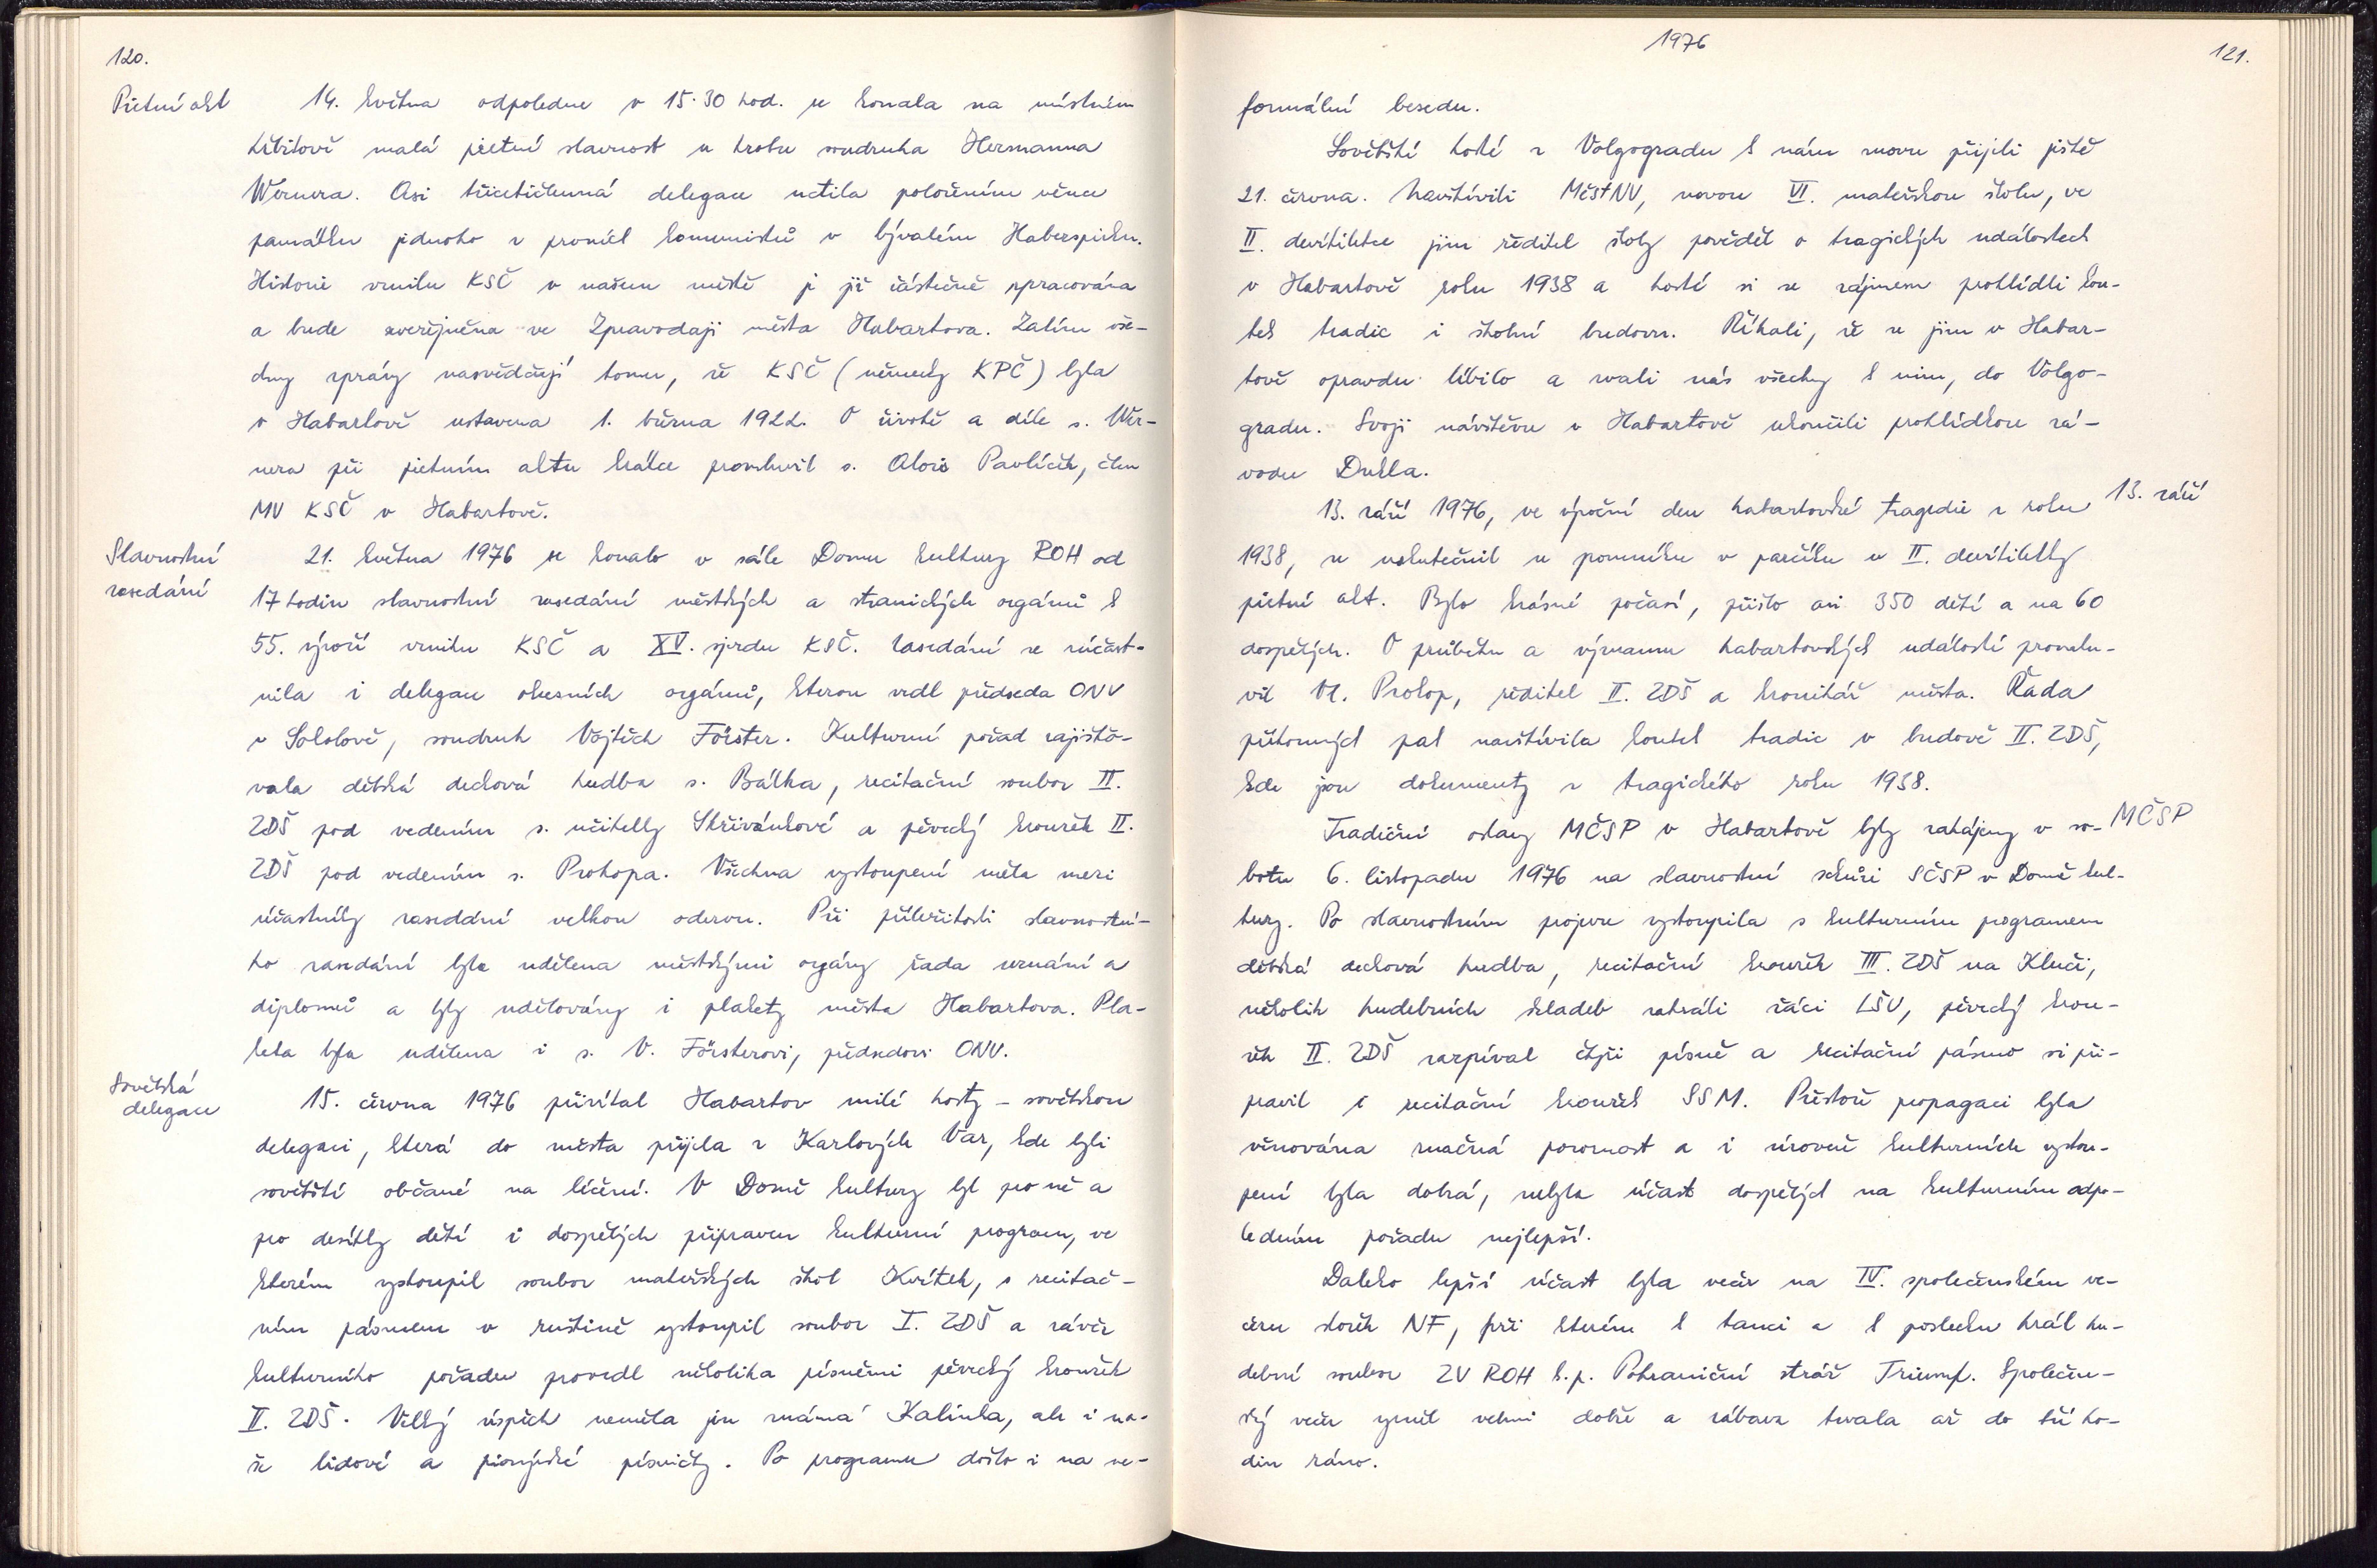 120.
Pietní akt
14. května odpoledne v 15.30 hod. se konala na místním
hřbitově malá pietní slavnost u hrobu soudruha Hermanna
Wernera. Asi třicetičlenná delegace uctila položením věnce
památku jednoho z prvních komunistů v bývalém Haberspirku.
Historie vzniku KSČ v našem městě je již částečně zpracována
a bude zveřejněna ve Zpravodaji města Habartova. Zatím vše-
chny zprávy nasvědčují tomu, že KSČ (německy KPČ) byla
v Habartově ustavena 1. března 1922. O životě a díle s. Wer-
nera při pietním aktu krátce promluvil s. Alois Pavlíček, člen
MV KSČ v Habartově.
Slavnostní
zasedání
21. května 1976 se konalo v sále Domu kultury ROH od
17 hodin slavnostní zasedání městských a stranických orgánů k
55. výročí vzniku KSČ a XV. sjezdu KSČ. Zasedání se zúčast-
nila i delegace okresních orgánů, kterou vedl předseda ONV
v Sokolově, soudruh Vojtěch Förster. Kulturní pořad zajišťo-
vala dětská dechová hudba s. Bálka, recitační soubor II.
ZDŠ pod vedením s. učitelky Skřivánkové a pěvecký kroužek II.
ZDŠ pod vedením s. Prokopa. Všechna vystoupení měla mezi
účastníky zasedání velkou odezvu. Při příležitosti slavnostní-
ho zasedání byla udělena městskými orgány řada uznání a
diplomů a byly udělovány i plakety města Habartova. Pla-
keta byla udělena i s. V. Försterovi, předsedovi ONV.
Sovětská
delegace
15. června 1976 přivítal Habartov milé hosty – sovětskou
delegaci, která do města přijela z Karlových Var, kde byli
sovětští občané na léčení. V Domě kultury byl pro ně a
pro desítky dětí i dospělých připraven kulturní program, ve
kterém vystoupil soubor mateřských škol Kvítek, s recitač-
ním pásmem v ruštině vystoupil soubor I. ZDŠ a závěr
kulturního pořadu provedl několika písněmi pěvecký kroužek
II. ZDŠ. Velký úspěch neměla jen známá Kalinka, ale i na-
še lidové a pionýrské písničky. Po programu došlo i na ne-
1976
121.
formální besedu.
Sovětští hosté z Volgogradu k nám znovu přijeli ještě
21. června. Navštívili MěstNV, novou VI. mateřskou školu, ve
II. devítiletce jim ředitel školy pověděl o tragických událostech
v Habartově roku 1938 a hosté si se zájmem prohlédli kou-
tek tradic i školní budovu. Říkali, že se jim v Habar-
tově opravdu líbilo a zvali nás všechny k nim, do Volgo-
gradu. Svoji návštěvu v Habartově ukončili prohlídkou zá-
vodu Dukla.
13. září 1976, ve výroční den habartovské tragedie z roku
13. září
1938, se uskutečnil u pomníku v parčíku u II. devítiletky
pietní akt. Bylo krásné počasí, přišlo asi 350 dětí a na 60
dospělých. O průběhu a významu habartovských událostí promlu-
vil Vl. Prokop, ředitel II. ZDŠ a kronikář města. Řada
přítomných pak navštívila koutek tradic v budově II. ZDŠ,
kde jsou dokumenty z tragického roku 1938.
Tradiční oslavy MČSP v Habartově byly zahájeny v so-
MČSP
botu 6. listopadu 1976 na slavnostní schůzi SČSP v Domě kul-
tury. Po slavnostním projevu vystoupila s kulturním programem
dětská dechová hudba, recitační kroužek III. ZDŠ na Kluči,
několik hudebních skladeb zahráli žáci LŠU, pěvecký krou-
žek II. ZDŠ zazpíval čtyři písně a recitační pásmo si při-
pravil i recitační kroužek SSM. Přestože propagaci byla
věnována značná pozornost a i úroveň kulturních vystou-
pení byla dobrá, nebyla účast dospělých na kulturním odpo-
ledním pořadu nejlepší.
Daleko lepší účast byla večer na IV. společenském ve-
čeru složek NF, při kterém k tanci a k poslechu hrál hu-
dební soubor ZV ROH k.p. Pohraniční stráž Triumf. Společen-
ský večer vyzněl velmi dobře a zábava trvala až do tří ho-
din ráno.